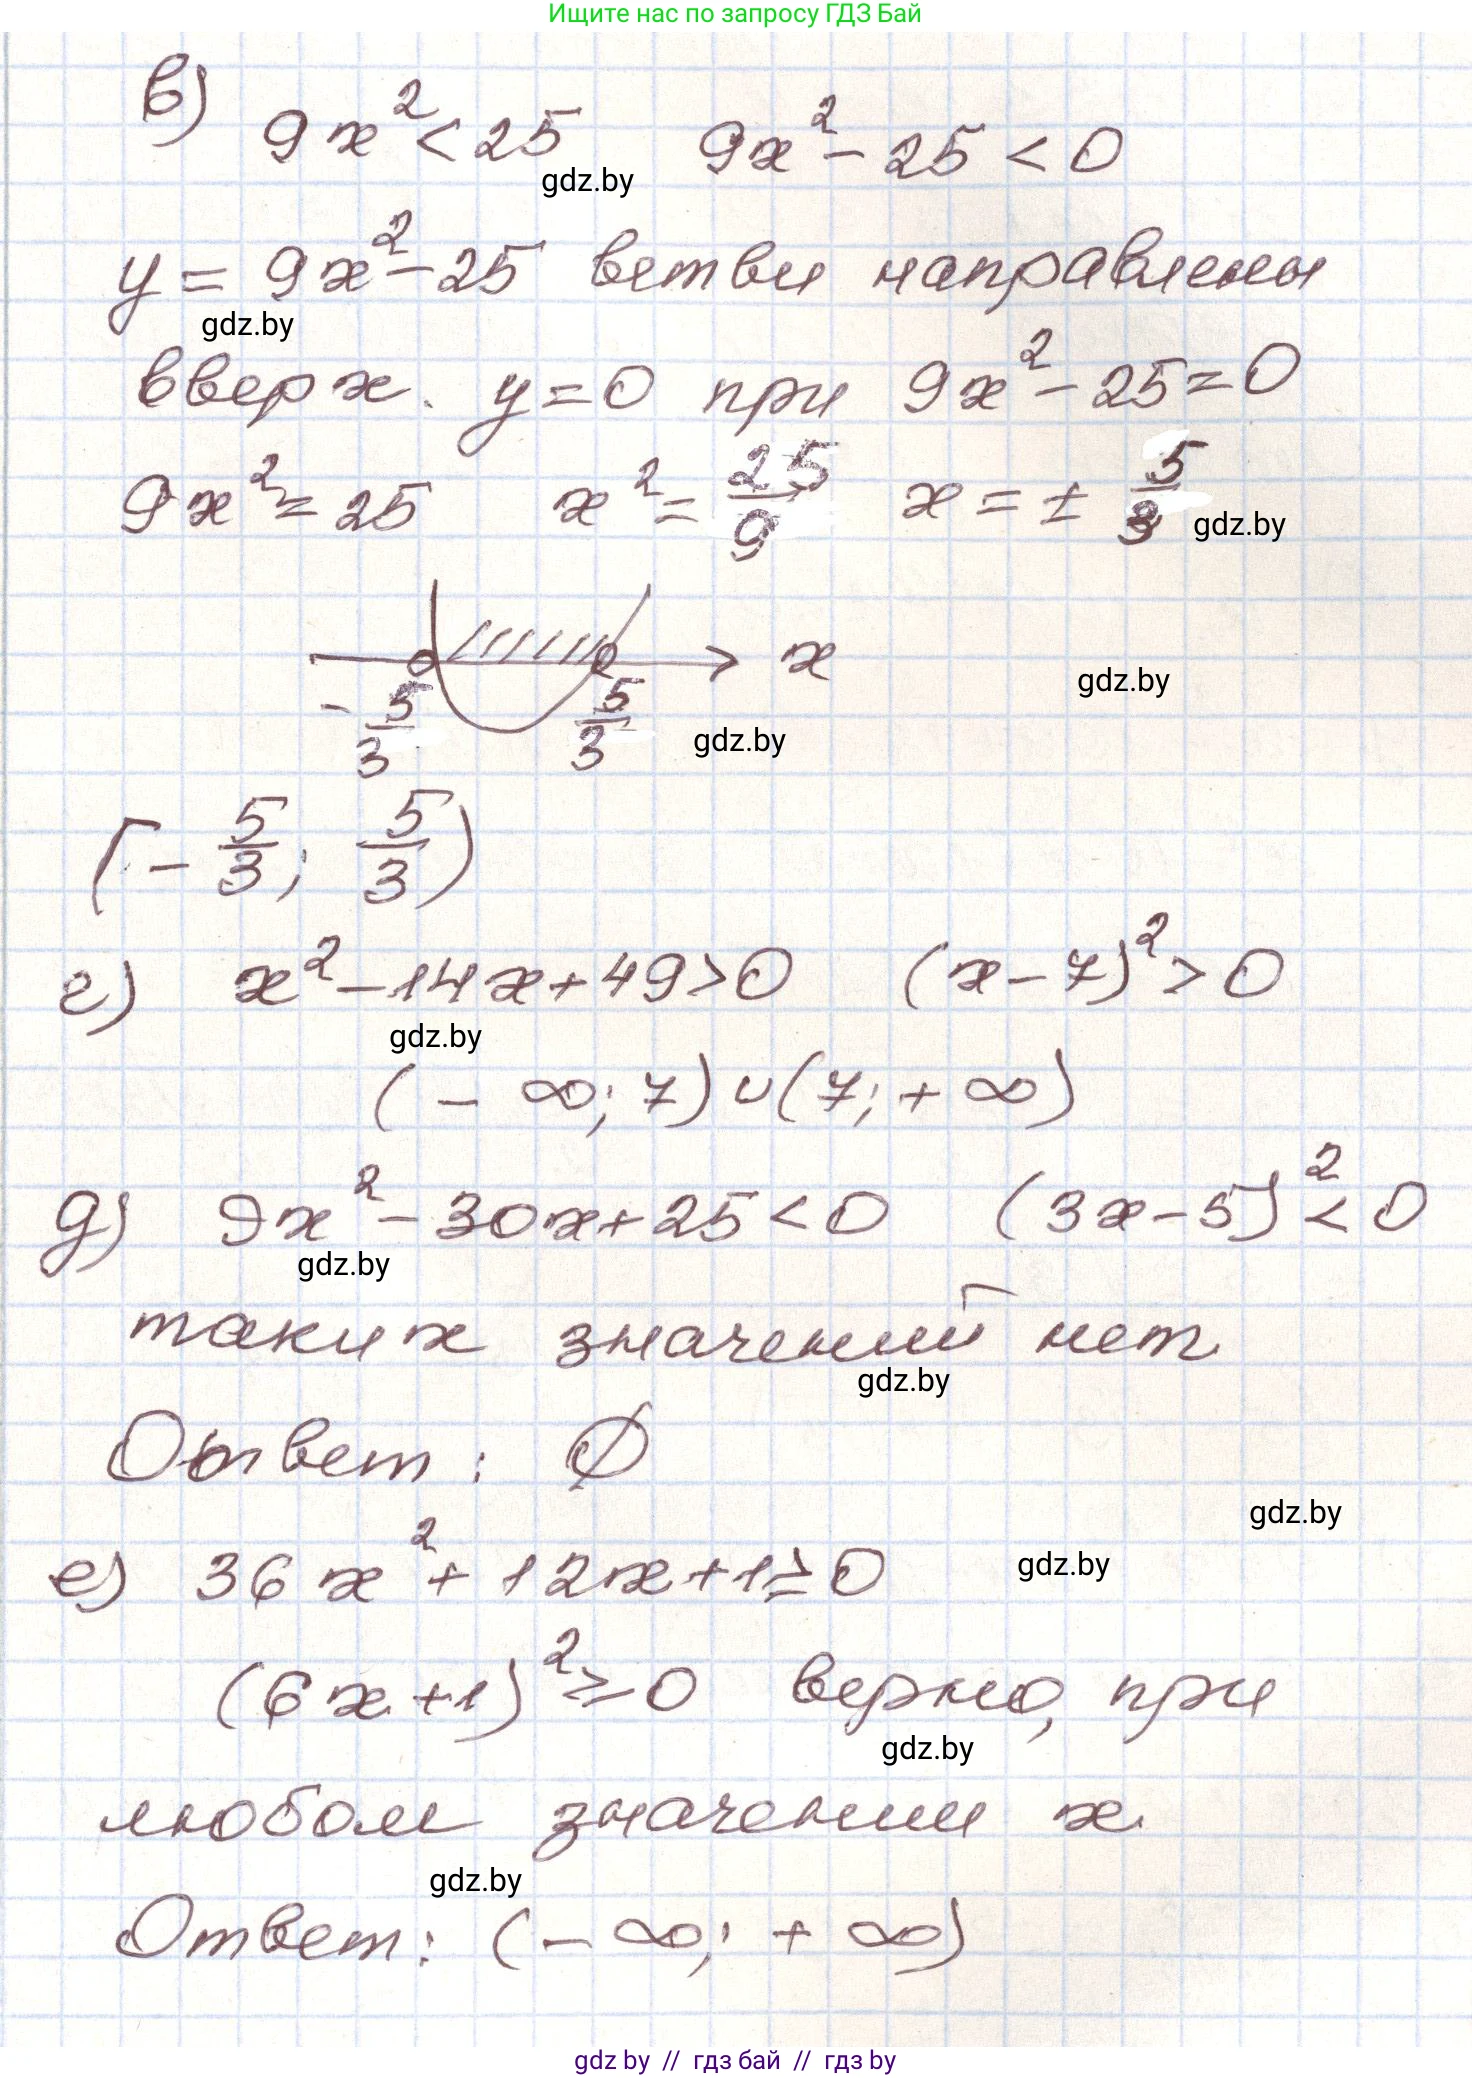 Ищите нас по запросу ГДЗ Бай
в) 9x² < 25 9x² - 25 < 0
gdz.by
y = 9x² - 25 ветви направлены
gdz.by
вверх. y = 0 при 9x² - 25 = 0
9x² = 25 x² = 25/9 x = ± 5/3 gdz.by
x
gdz.by
-5/3 5/3 gdz.by
(-5/3; 5/3)
г) x² - 14x + 49 > 0 (x - 7)² > 0
gdz.by
(-∞; 7) ∪ (7; +∞)
д) 9x² - 30x + 25 < 0 (3x - 5)² < 0
gdz.by
таких значений нет
gdz.by
Ответ: Ø
gdz.by
е) 36x² + 12x + 1 ≥ 0 gdz.by
(6x + 1)² ≥ 0 верно, при
gdz.by
любом значении x
gdz.by
Ответ: (-∞; +∞)
gdz by // гдз бай // гдз by